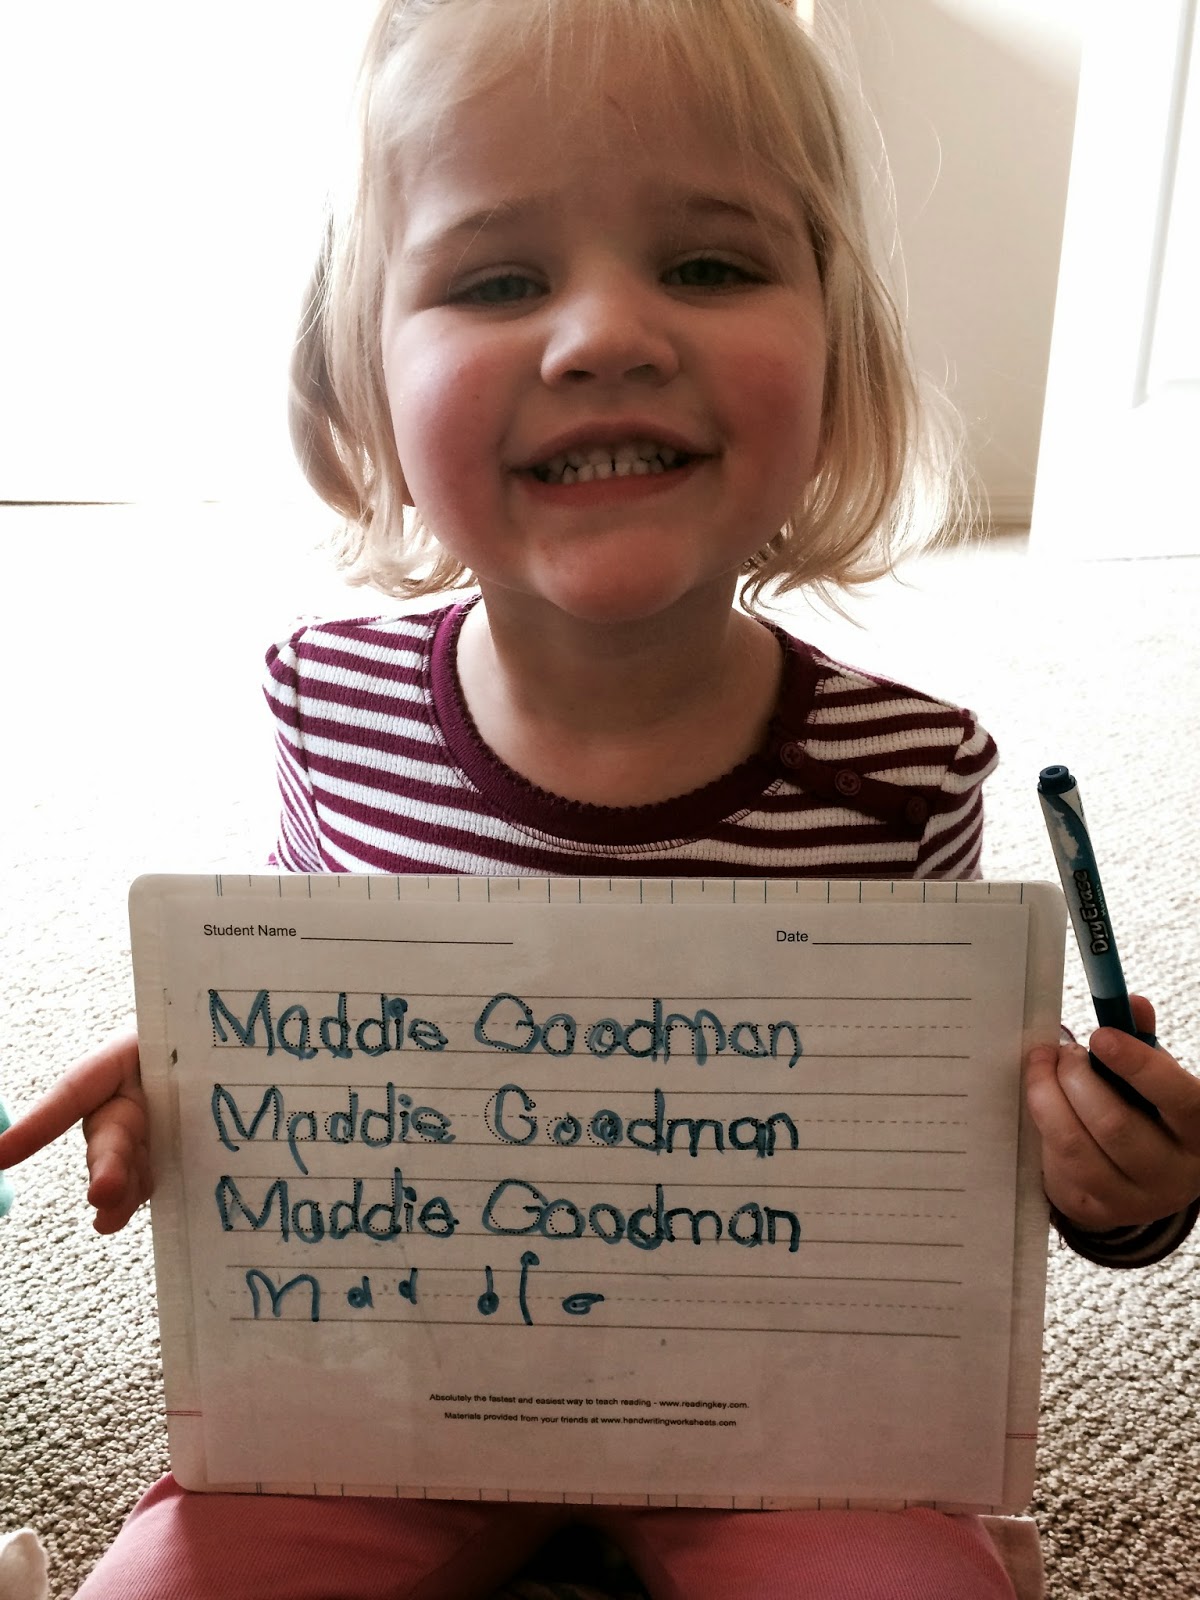 Student Name
Date
Maddie Goodman
Maddie Goodman
Maddie Goodman
Maddie
Absolutely the fastest and easiest way to teach reading - www.readingkey.com.
Materials provided from your friends at www.handwritingworksheets.com
Dry Erase